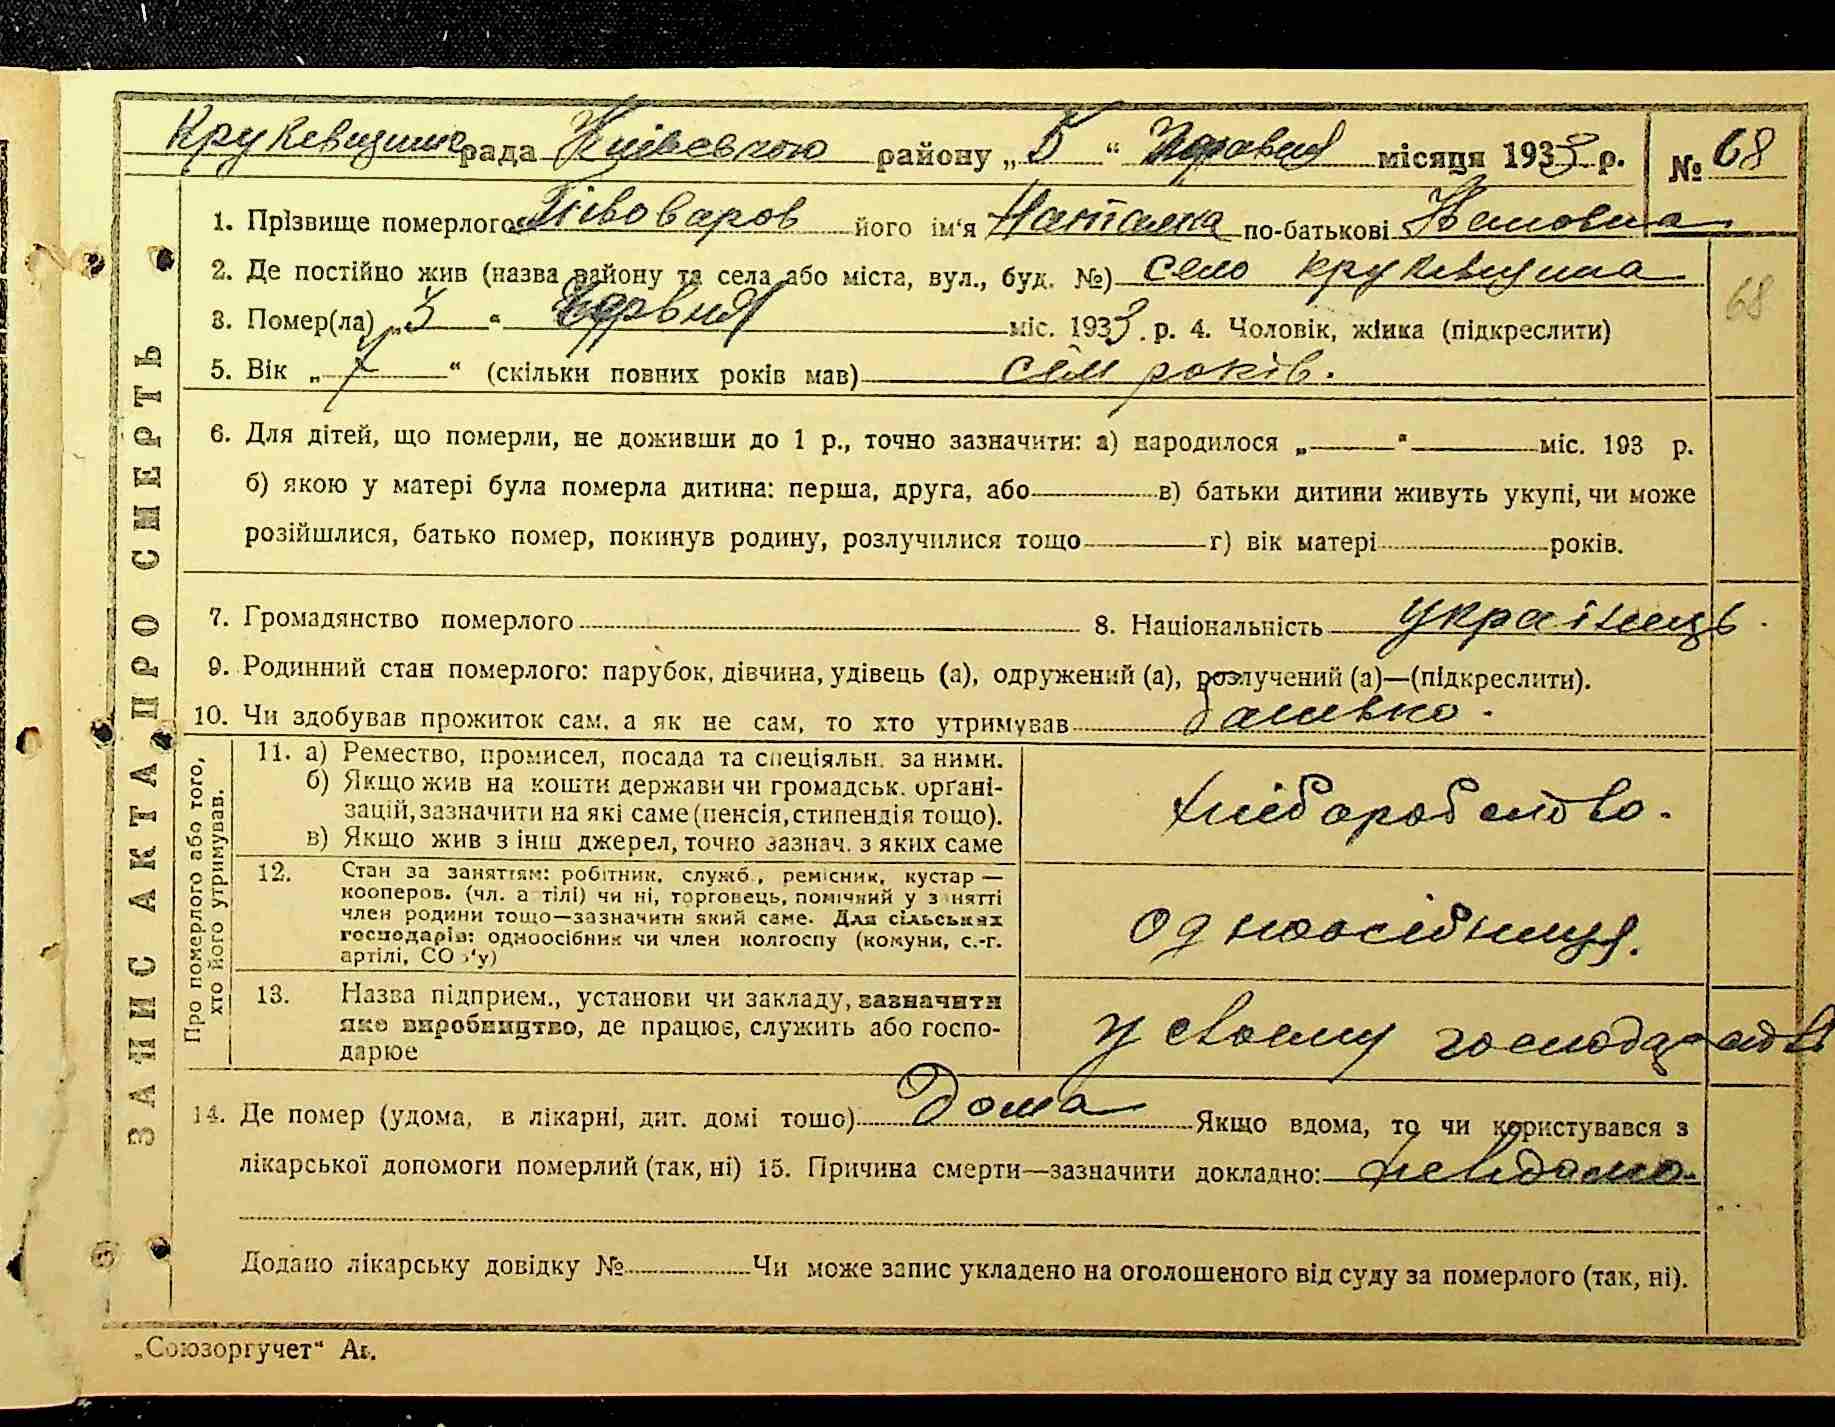 Крукевщина рада Київською району „5“ червня місяця 1933 р. № 68
1. Прізвище померлого Півоваров його ім'я Наталка по-батькові
2. Де постійно жив (назва району та села або міста, вул., буд. №) село крукевщина
68
3. Помер(ла) „3“ червня міс. 1933 р. 4. Чоловік, жінка (підкреслити)
5. Вік „7“ (скільки повних років мав) сем років.
6. Для дітей, що померли, не доживши до 1 р., точно зазначити: а) народилося „ “ міс. 193 р.
б) якою у матері була померла дитина: перша, друга, або в) батьки дитини живуть укупі, чи може
розійшлися, батько помер, покинув родину, розлучилися тощо г) вік матері років.
7. Громадянство померлого 8. Національність українець
9. Родинний стан померлого: парубок, дівчина, удівець (а), одружений (а), розлучений (а)—(підкреслити).
10. Чи здобував прожиток сам, а як не сам, то хто утримував батько.
ЗАПИС АКТА ПРО СМЕРТЬ
Про померлого або того,
хто його утримував.
11. а) Ремество, промисел, посада та спеціяльн. за ними.
б) Якщо жив на кошти держави чи громадськ. орґані-
зацій, зазначити на які саме (пенсія, стипендія тощо).
в) Якщо жив з інш джерел, точно зазнач. з яких саме
хліборобство.
12. Стан за заняттям: робітник, служб., ремісник, кустар —
кооперов. (чл. артілі) чи ні, торговець, помічний у занятті
член родини тощо—зазначити який саме. Для сільських
господарів: одноосібник чи член колгоспу (комуни, с.-г.
артілі, СОЗ'у)
одноосібниця.
13. Назва підприєм., установи чи закладу, зазначити
яке виробництво, де працює, служить або госпо-
дарює
у своєму господарстві
14. Де помер (удома, в лікарні, дит. домі тощо) Дома Якщо вдома, то чи користувався з
лікарської допомоги померлий (так, ні) 15. Причина смерти—зазначити докладно: невідомо.
Додано лікарську довідку № Чи може запис укладено на оголошеного від суду за померлого (так, ні).
„Союзоргучет“